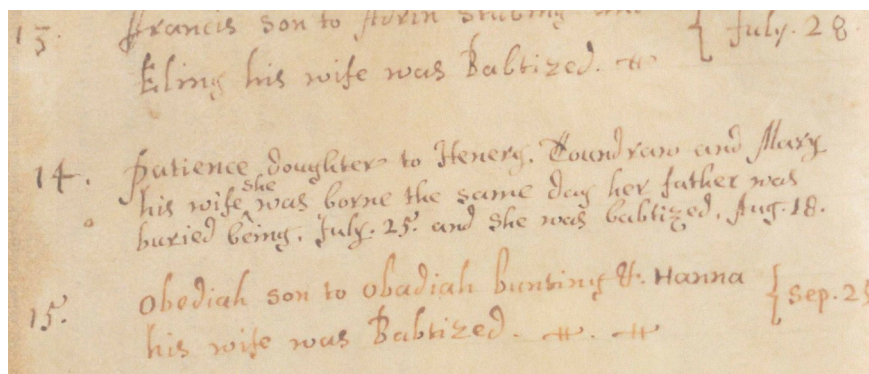 13. Francis son to
July. 28
Eling his wife was Babtized.
14. patience doughter to Henery. Toundraw and Mary
his wife she was borne the same day her father was
buried being. July. 25. and she was babtized. Aug. 18.
15. Obediah son to Obadiah bunting &. Hanna
Sep. 25
his wife was Babtized.